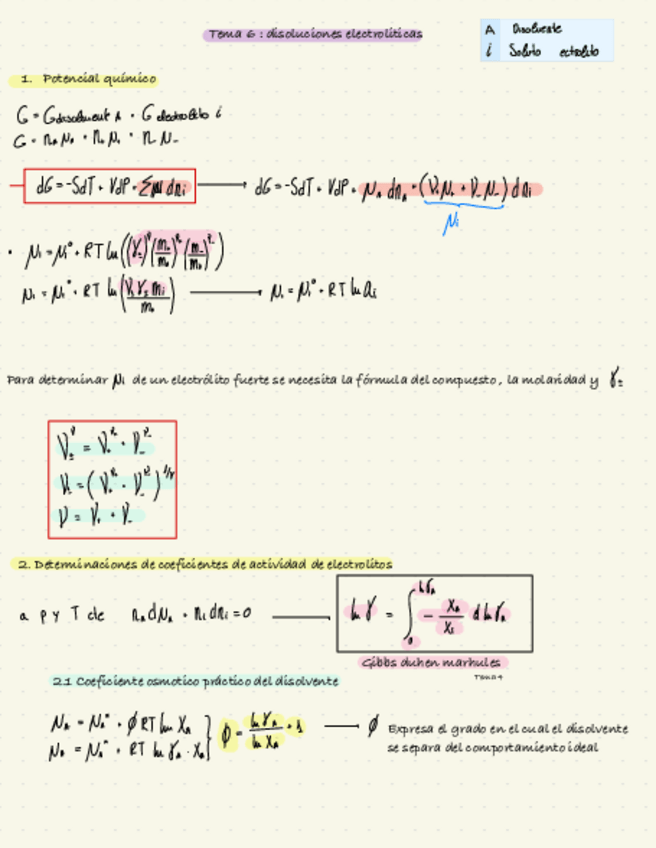 Tema 6 : disoluciones electrolíticas
A Disolvente
i Soluto
1. Potencial químico
G = G disolvent A + G electrolito i
dG = -SdT + VdP + Σμ dni
dG = -SdT + VdP + μA dnA + (ν+μ+ + ν-μ-) dni
μi
μi = μi° + RT ln((γ±)^ν (m+/m°)^ν+ (m-/m°)^ν-)
μi = μi° + RT ln ai
Para determinar μi de un electrólito fuerte se necesita la fórmula del compuesto, la molaridad y γ±
ν±^ν = ν+^ν+ · ν-^ν-
ν± = (ν+^ν+ · ν-^ν-)^1/ν
ν = ν+ + ν-
2. Determinaciones de coeficientes de actividad de electrolitos
a P y T cte
ln γ = ∫ - XA/Xi d ln γA
Gibbs duhen marhules
Tema 4
2.1 Coeficiente osmotico práctico del disolvente
μA = μA* + φ RT ln XA
φ = ln γA / ln XA + 1
φ Expresa el grado en el cual el disolvente
se separa del comportamiento ideal